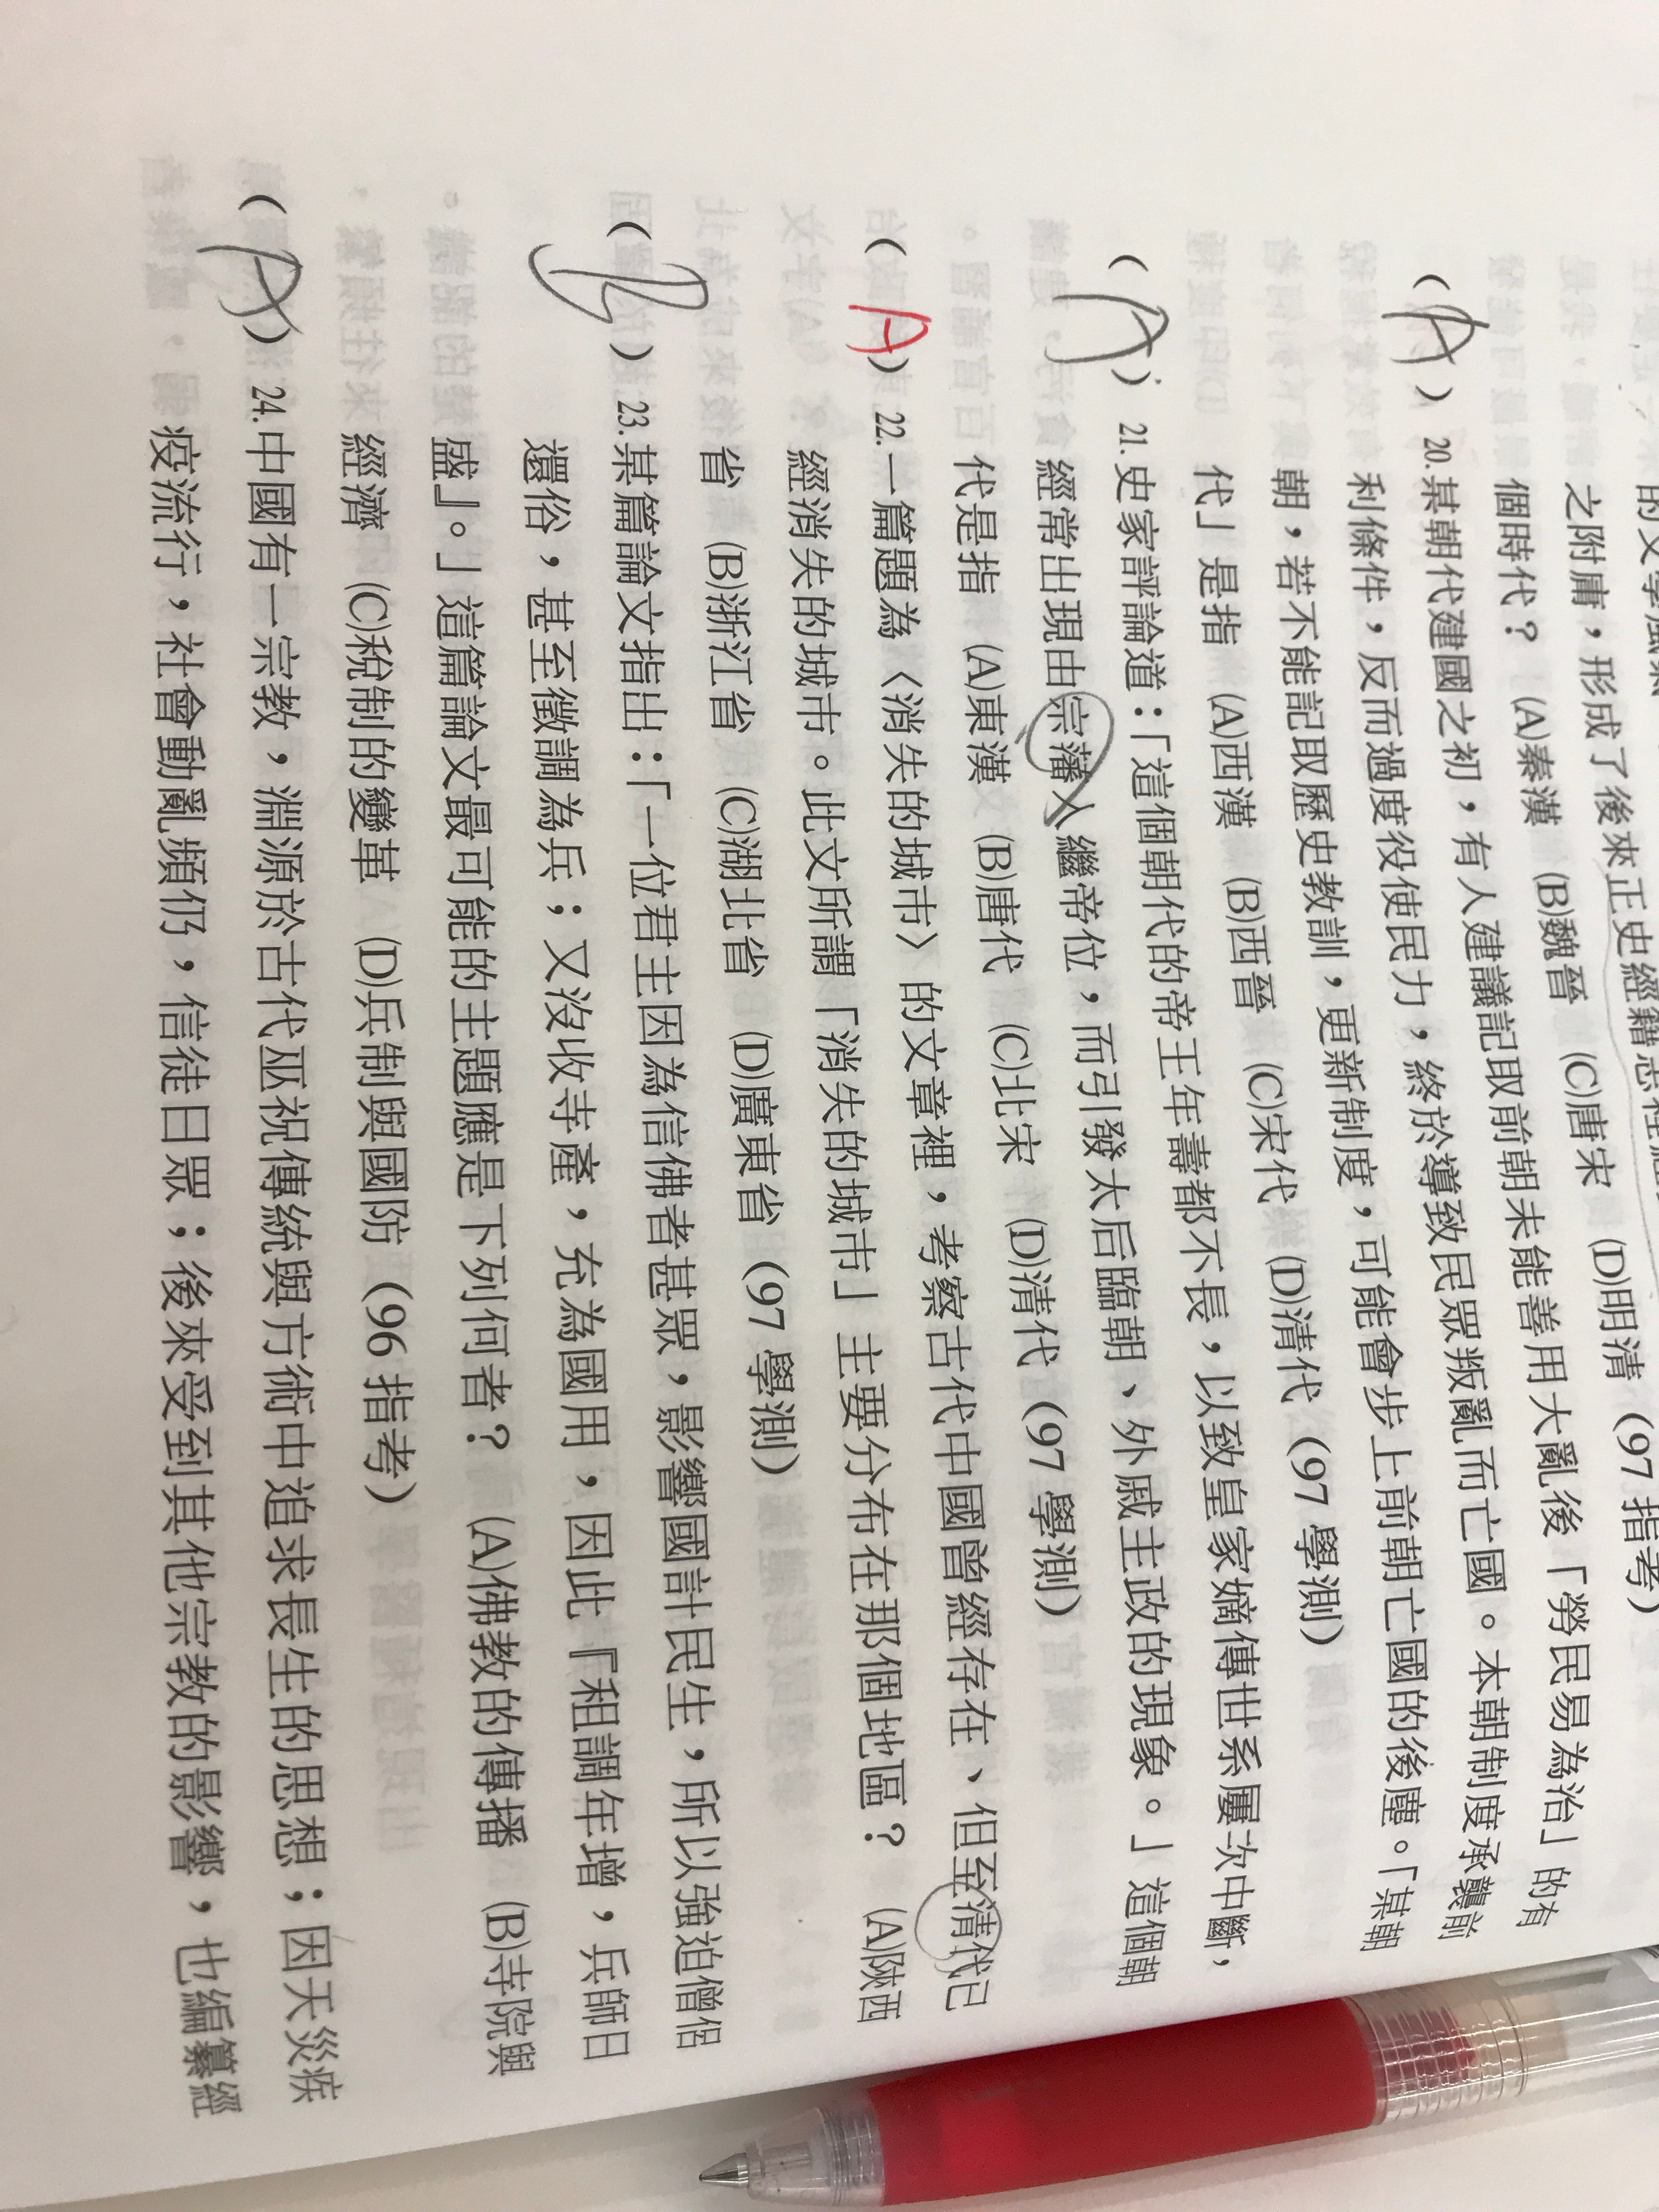 之附庸，形成了後來正史經籍志
個時代？ (A)秦漢 (B)魏晉 (C)唐宋 (D)明清 (97 指考)
(A) 20.某朝代建國之初，有人建議記取前朝未能善用大亂後「勞民易為治」的有
利條件，反而過度役使民力，終於導致民眾叛亂而亡國。本朝制度承襲前
朝，若不能記取歷史教訓，更新制度，可能會步上前朝亡國的後塵。「某朝
代」是指 (A)西漢 (B)西晉 (C)宋代 (D)清代 (97 學測)
(A) 21.史家評論道：「這個朝代的帝王年壽都不長，以致皇家嫡傳世系屢次中斷，
經常出現由宗藩入繼帝位，而引發太后臨朝、外戚主政的現象。」這個朝
代是指 (A)東漢 (B)唐代 (C)北宋 (D)清代 (97 學測)
(A) 22.一篇題為〈消失的城市〉的文章裡，考察古代中國曾經存在、但至清代已
經消失的城市。此文所謂「消失的城市」主要分布在那個地區？ (A)陝西
省 (B)浙江省 (C)湖北省 (D)廣東省 (97 學測)
(B) 23.某篇論文指出：「一位君主因為信佛者甚眾，影響國計民生，所以強迫僧侶
還俗，甚至徵調為兵；又沒收寺產，充為國用，因此『租調年增，兵師日
盛』。」這篇論文最可能的主題應是下列何者？ (A)佛教的傳播 (B)寺院與
經濟 (C)稅制的變革 (D)兵制與國防 (96 指考)
(A) 24.中國有一宗教，淵源於古代巫祝傳統與方術中追求長生的思想；因天災疾
疫流行，社會動亂頻仍，信徒日眾；後來受到其他宗教的影響，也編纂經